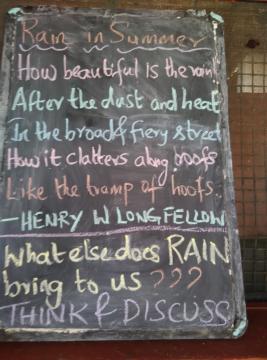 Rain in Summer
How beautiful is the rain
After the dust and heat
In the broad & fiery street
How it clatters along roofs
Like the tramp of hoofs
- HENRY W LONGFELLOW
What else does RAIN
bring to us ???
THINK & DISCUSS